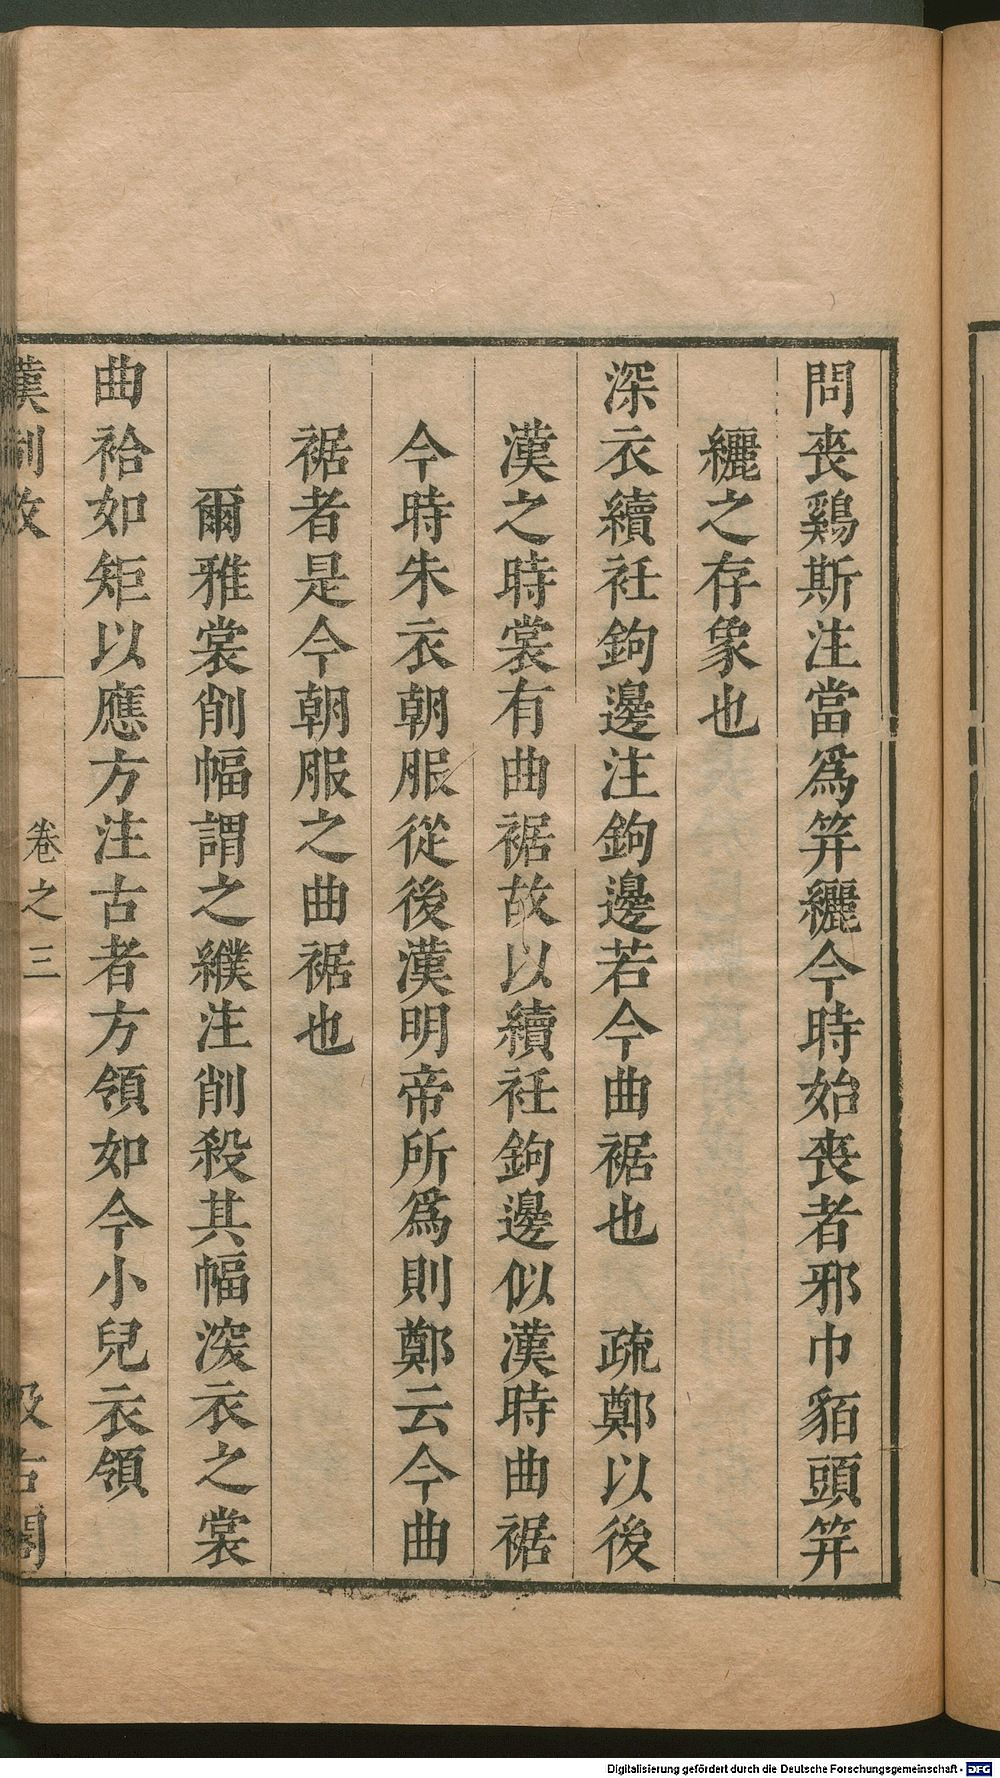 問喪鷄斯注當爲笄纚今時始喪者邪巾貊頭笄
纚之存象也
深衣續衽鉤邊注鉤邊若今曲裾也　疏鄭以後
漢之時裳有曲裾故以續衽鉤邊似漢時曲裾
今時朱衣朝服從後漢明帝所爲則鄭云今曲
裾者是今朝服之曲裾也
爾雅裳削幅謂之纀注削殺其幅深衣之裳
曲袷如矩以應方注古者方領如今小兒衣領
漢制攷　卷之三　汲古閣
Digitalisierung gefördert durch die Deutsche Forschungsgemeinschaft - DFG